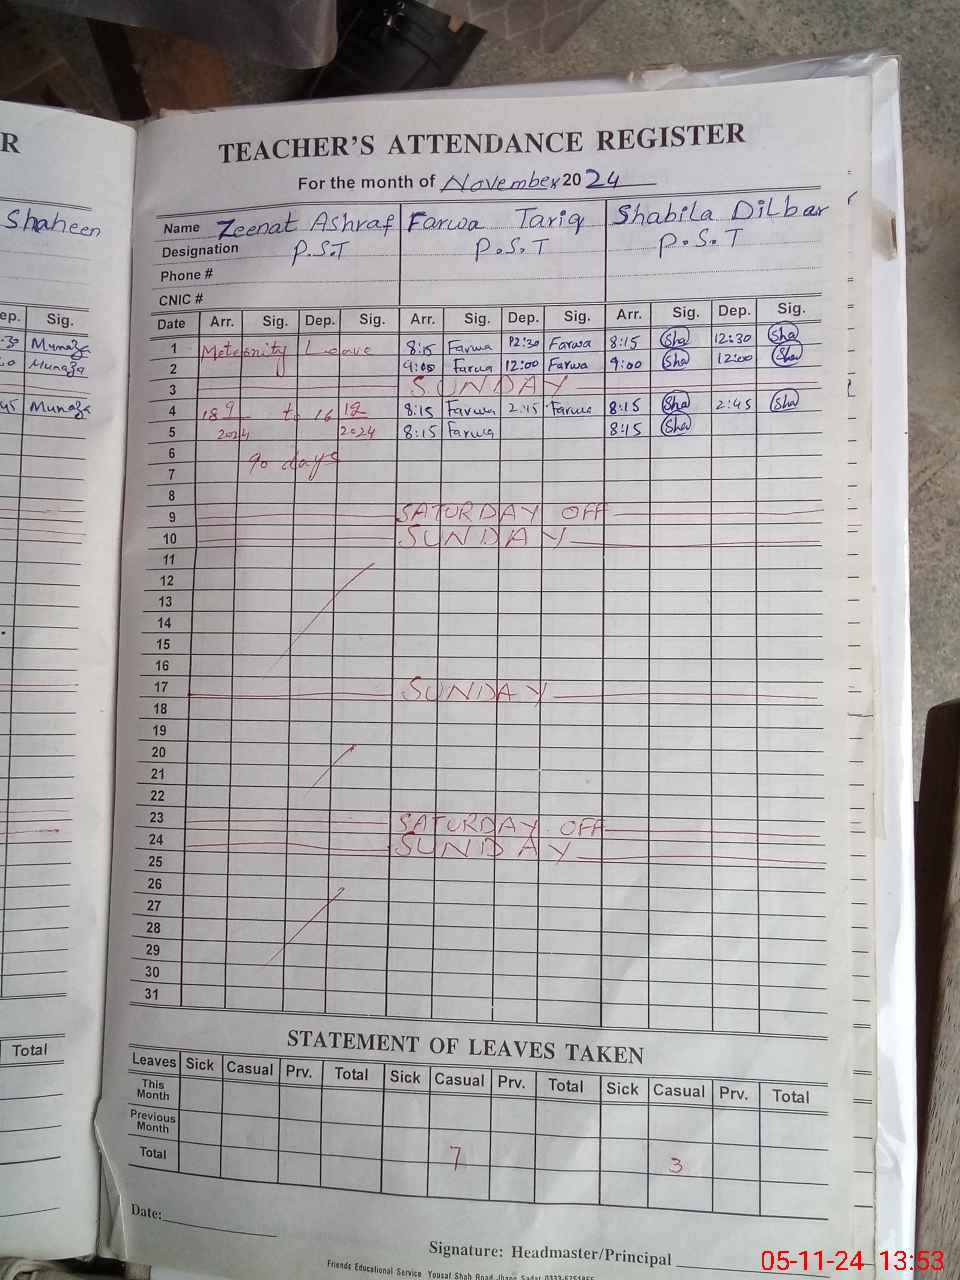 R
Shaheen
ep. Sig.
.30 Munaza
.0 Munaza
45 Munaza
Total
TEACHER'S ATTENDANCE REGISTER
For the month of November 2024
Name Zeenat Ashraf Farwa Tariq Shabila Dilbar
Designation P.S.T P.S.T P.S.T
Phone #
CNIC #
Date Arr. Sig. Dep. Sig. Arr. Sig. Dep. Sig. Arr. Sig. Dep. Sig.
1 Meternity Leave 8:15 Farwa 12:30 Farwa 8:15 Sha 12:30 Sha
2 9:00 Farwa 12:00 Farwa 9:00 Sha 12:00 Sha
3 SUNDAY
4 18 9 to 16 12 8:15 Farwa 2:45 Farwa 8:15 Sha 2:45 Sha
5 2024 2024 8:15 Farwa 8:15 Sha
6
7 90 days
8
9 SATURDAY OFF
10 SUNDAY
11
12
13
14
15
16
17 SUNDAY
18
19
20
21
22
23 SATURDAY OFF
24 SUNDAY
25
26
27
28
29
30
31
STATEMENT OF LEAVES TAKEN
Leaves Sick Casual Prv. Total Sick Casual Prv. Total Sick Casual Prv. Total
This Month
Previous Month
Total 7 3
Date:
Signature: Headmaster/Principal
Friends Educational Service Yousaf Shah Road Jhang Sadar
05-11-24 13:53